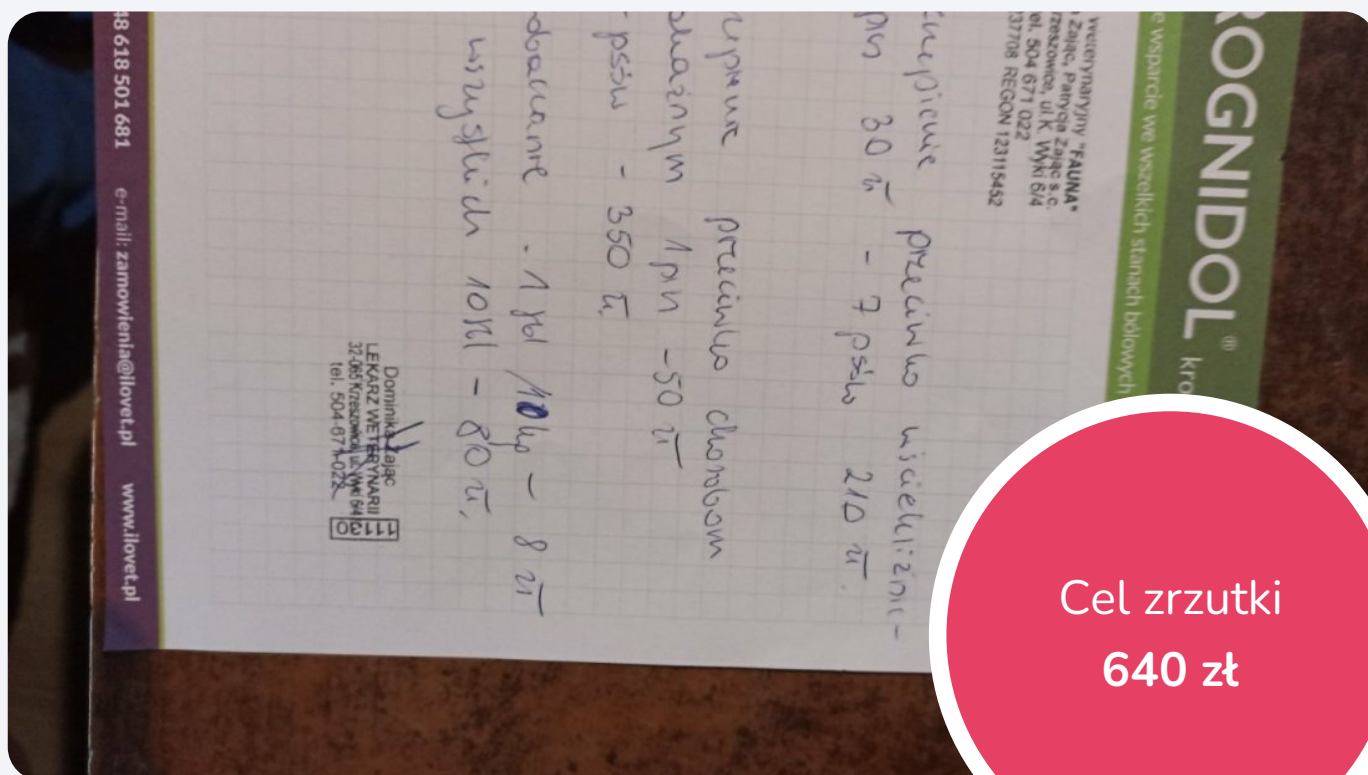 ROGNIDOL® kro
e wsparcie we wszelkich stanach bólowych
weterynaryjny "FAUNA"
Zając, Patrycja Zając s.c.
rzeszowice, ul. K. Wyki 6/4
el. 504 671 022
37708 REGON 123115452
przeciwko wściekliźnie -
30 zł - 7 psów 210 zł.
przeciwko chorobom
1 pis - 50 zł
psów - 350 zł,
- 1 tbl / 10kg - 8 zł
wszystkich 10tbl - 80 zł,
Dominika Zając
LEKARZ WETERYNARII
32-065 Krzeszowice, ul. Wyki 6/4
tel. 504-671-022
48 618 501 681 e-mail: zamowienia@ilovet.pl www.ilovet.pl
Cel zrzutki
640 zł